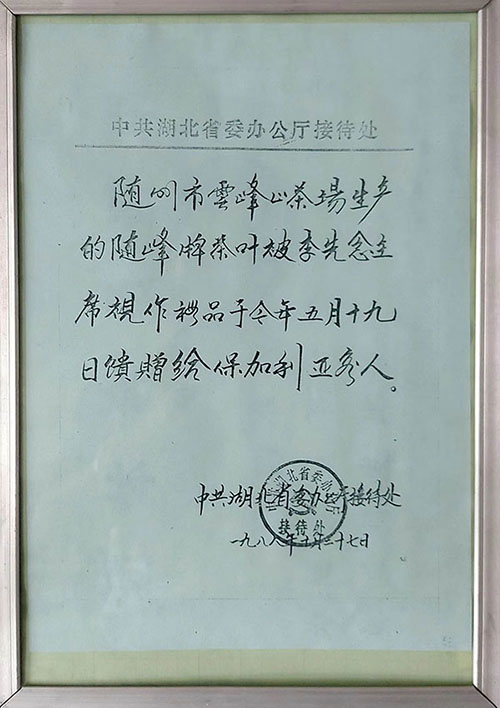 中共湖北省委办公厅接待处
随州市雲峰山茶場生产
的随峰牌茶叶被李先念主
席視作礼品于今年五月十九
日馈贈给保加利亚客人。
中共湖北省委办公厅接待处
接待处
一九八八年十月二十七日